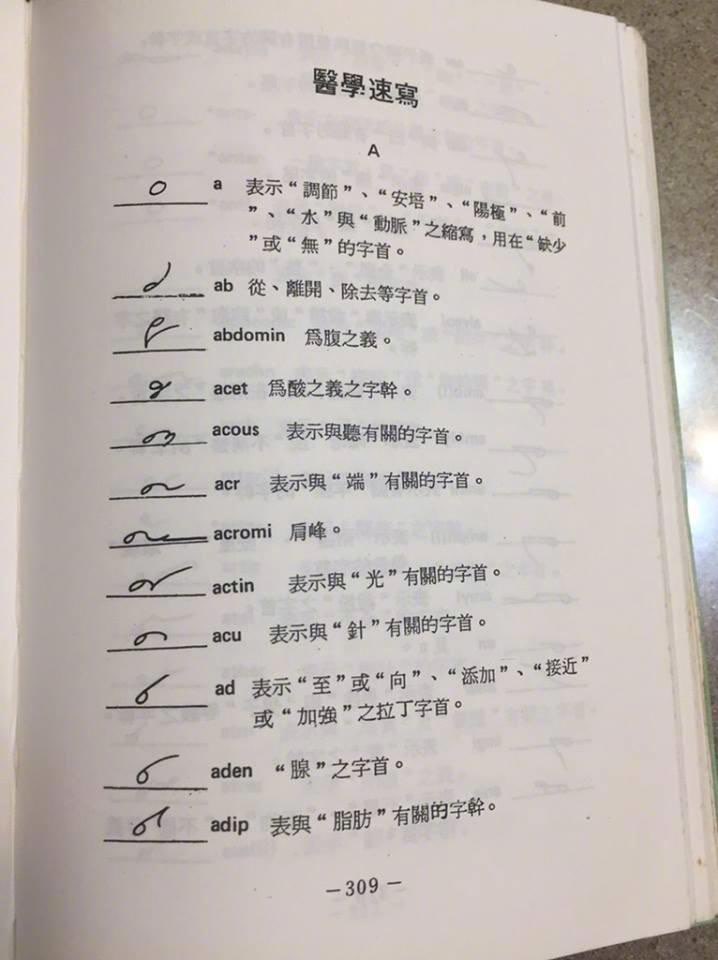 醫學速寫
A
a 表示“調節”、“安培”、“陽極”、“前
”、“水”與“動脈”之縮寫，用在“缺少
”或“無”的字首。
ab 從、離開、除去等字首。
abdomin 爲腹之義。
acet 爲酸之義之字幹。
acous 表示與聽有關的字首。
acr 表示與“端”有關的字首。
acromi 肩峰。
actin 表示與“光”有關的字首。
acu 表示與“針”有關的字首。
ad 表示“至”或“向”、“添加”、“接近”
或“加強”之拉丁字首。
aden “腺”之字首。
adip 表與“脂肪”有關的字幹。
－309－